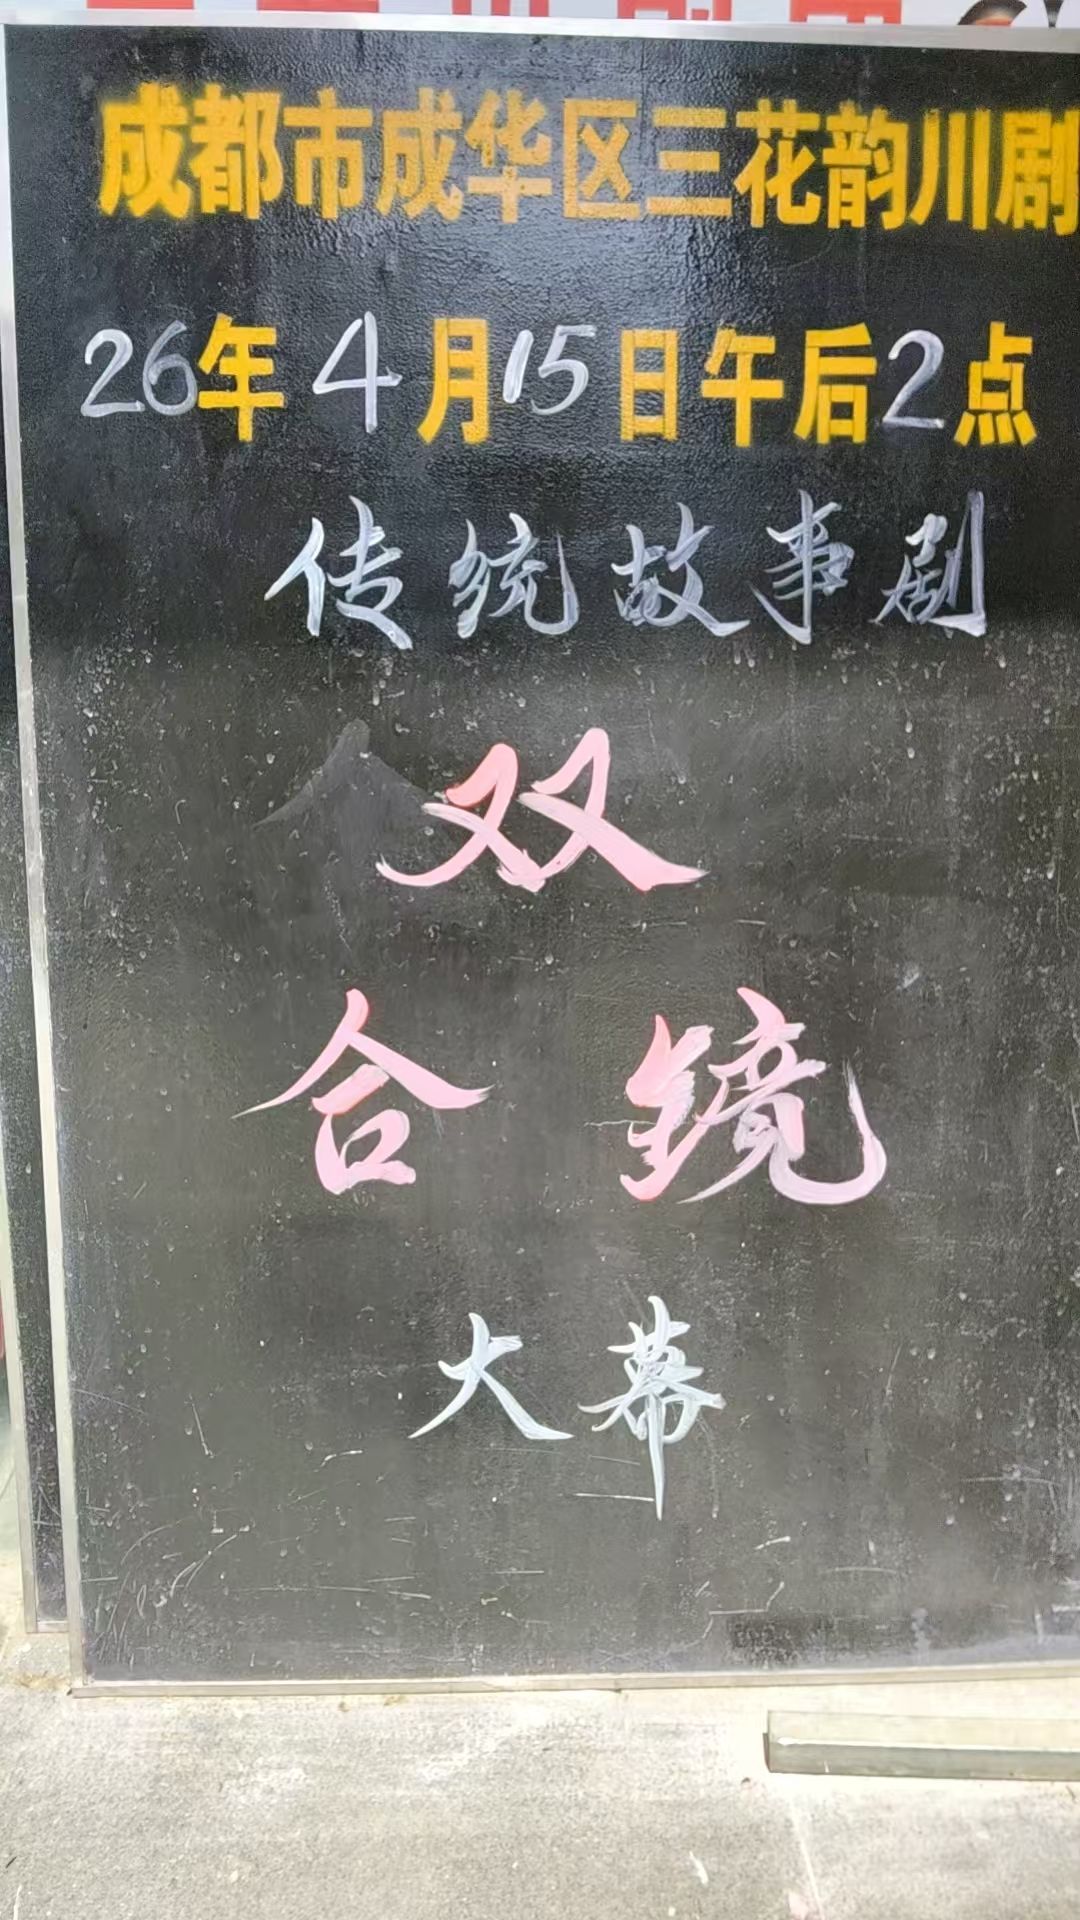 成都市成华区三花韵川剧
26年4月15日午后2点
传统故事剧
双
合镜
大幕